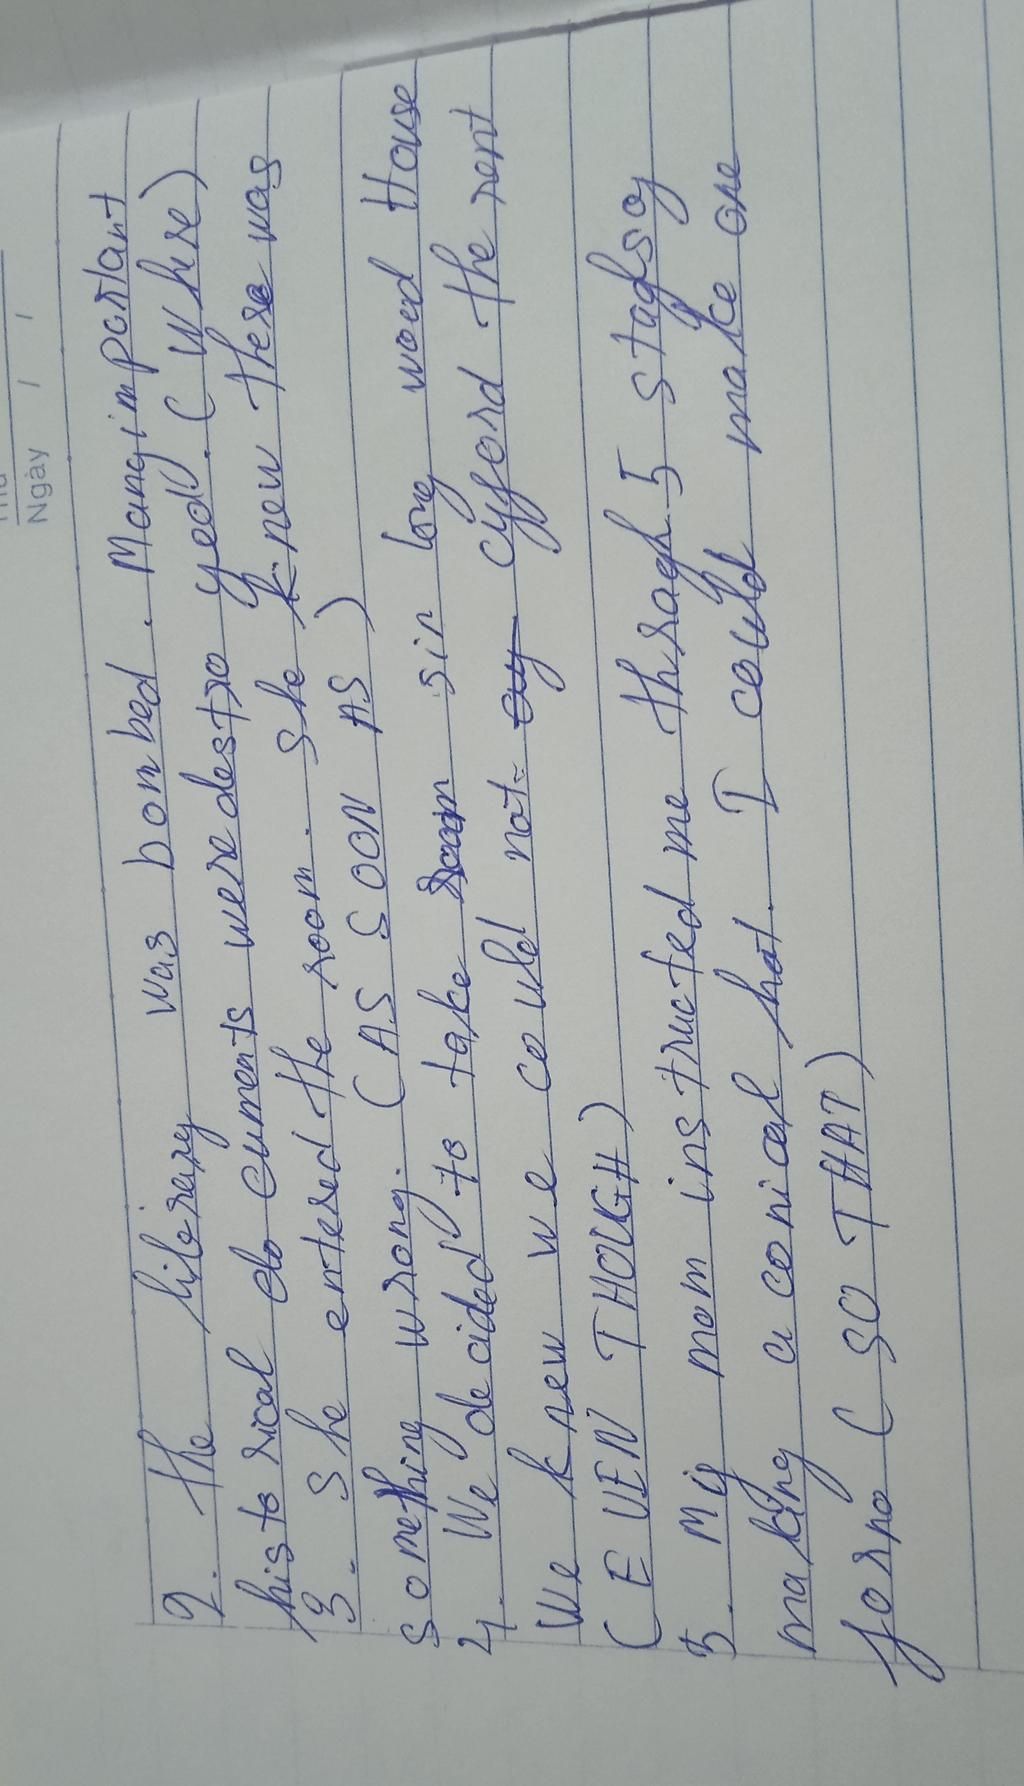 Ngày / /
2. the library was bombed. Many important
historical documents were destroyed. (Where)
3. She entered the room. She knew there was
something wrong. (AS SOON AS)
4. We decided to take in wood House
We knew we could not afford the rent
(EVEN THOUGH)
5. My mom instructed me through 5 stages of
making a conical hat. I could make one
(SO THAT)